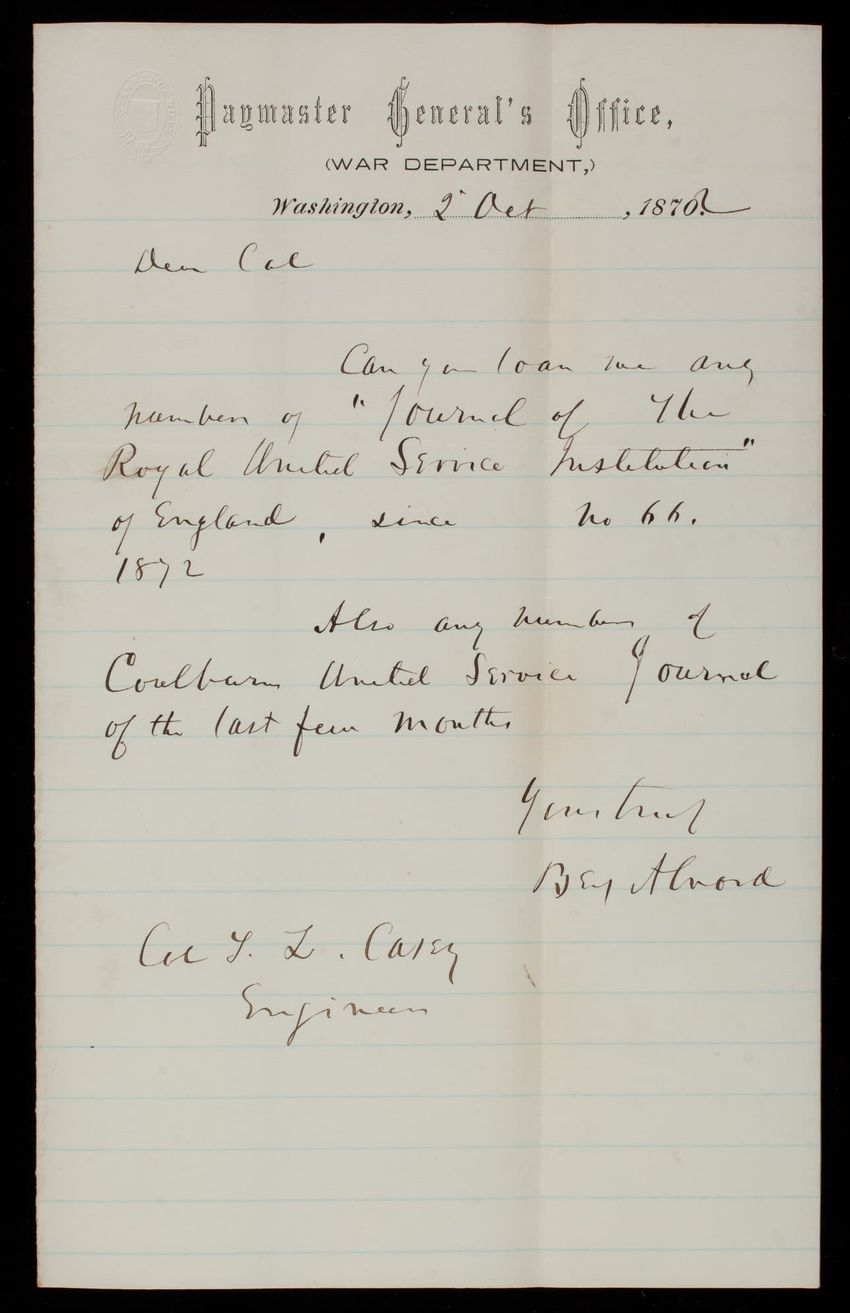 Paymaster General's Office,
(WAR DEPARTMENT,)
Washington, 2 Oct, 1872
Dear Col
Can you loan me any
numbers of "Journal of The
Royal United Service Institution"
of England, since No 66.
1872
Also any numbers of
Coulburns United Service Journal
of the last few months
Yours truly
Benj Alvord
Col T. L. Casey
Engineers